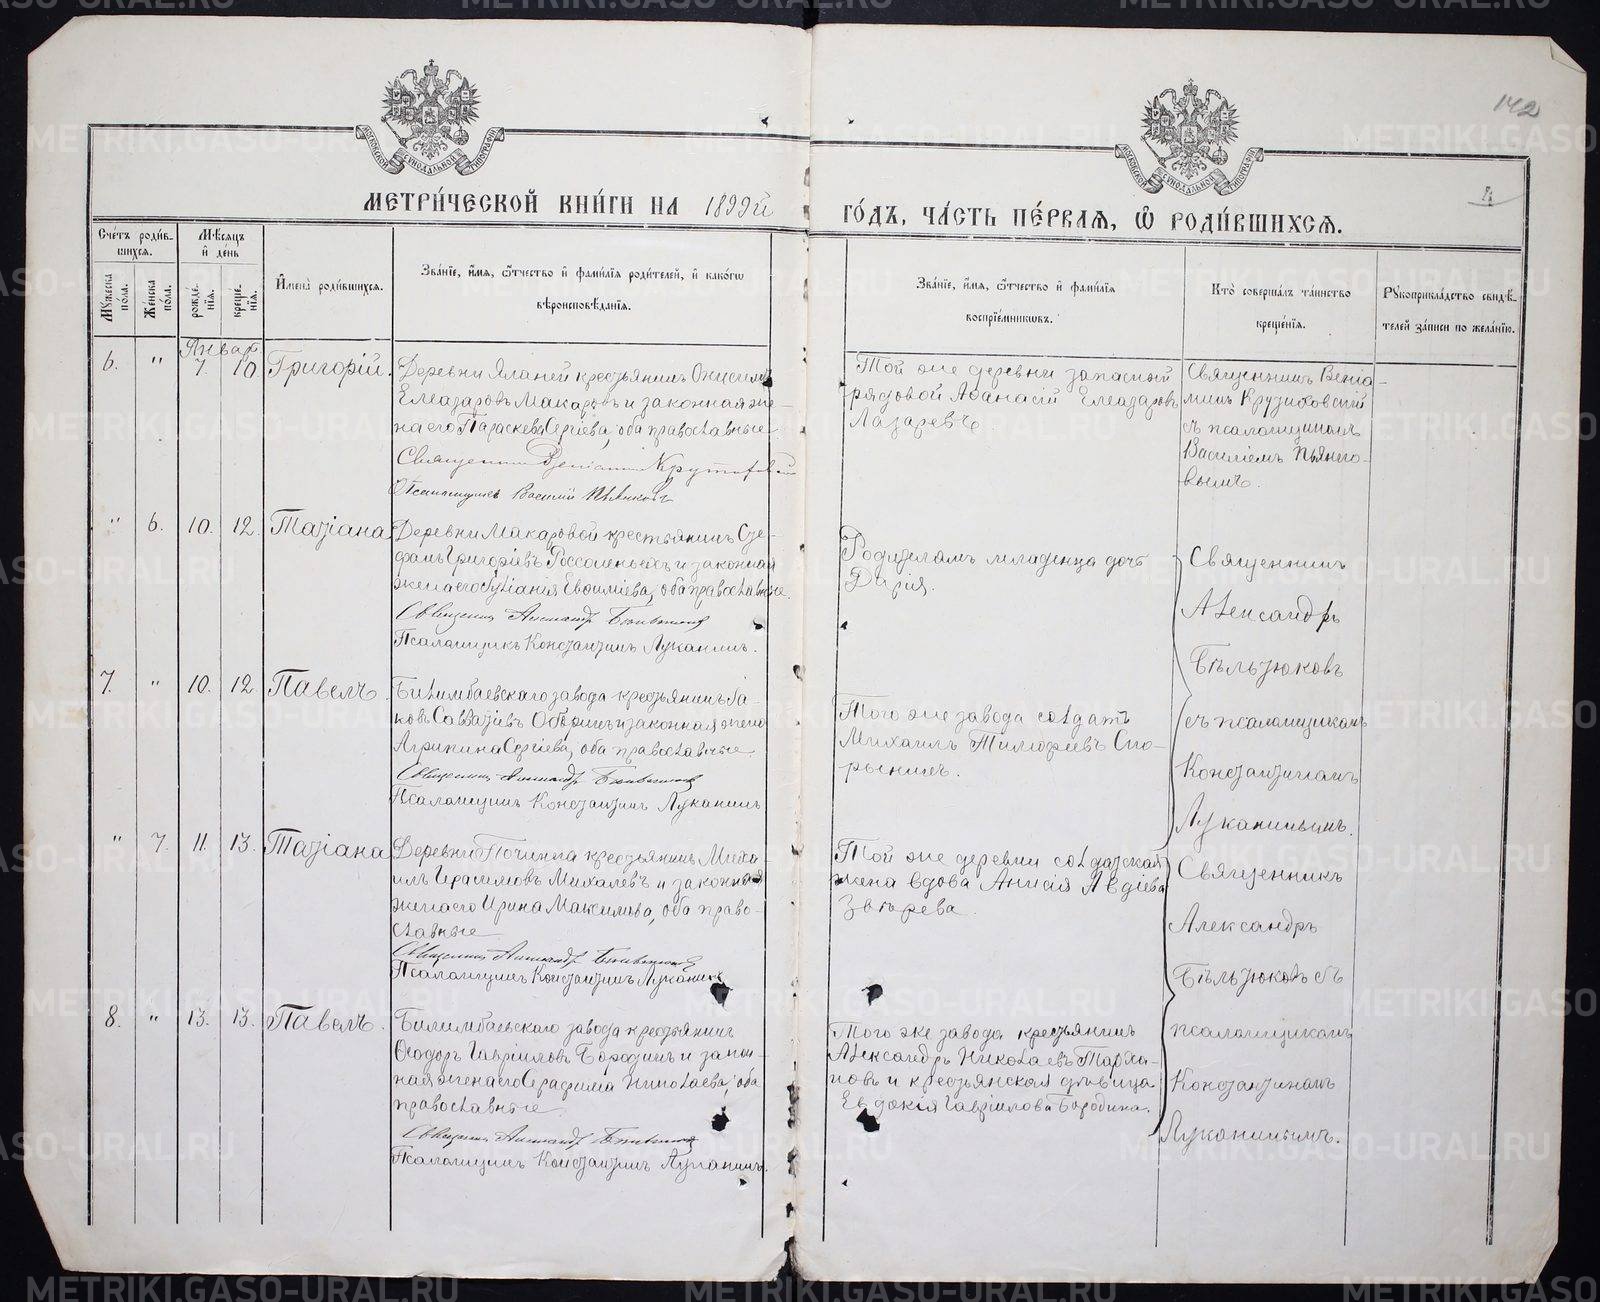 142
4
МЕТРИ́ЧЕСКОЙ КНИ́ГИ НА 1899й
ГО́ДЪ, ЧА́СТЬ ПЕ́РВАЯ, Ѡ РОДИ́ВШИХСЯ.
Сче́тъ роди́вшихся.
Му́жеска по́ла.
Же́нска по́ла.
Мѣ́сяцъ и де́нь
рожде́нїя.
креще́нїя.
Имена̀ роди́вшихся.
Зва́нїе, и́мя, ѻ҆́тчество и фами́лїя роди́телей, и како́гѡ
вѣроисповѣ́данїя.
Зва́нїе, и́мя, ѻ҆́тчество и фами́лїя
воспрїе́мникѡвъ.
Кто̀ соверша́лъ та́инство
креще́нїя.
Рꙋкоприкла́дство свидѣ́-
телей за́писи по жела́нїю.
Январ
6. " 7. 10 Григорій.
Деревни Яланей крестьянинъ Онисимъ
Елеазаровъ Макаровъ и законная же-
на его Параскева Сергіева, оба православные
Священникъ Веніаминъ
Псаломщикъ Василій Пьянковъ
Той же деревни запасный
рядовой Аѳанасій Елеазаровъ
Лазаревъ.
Священникъ Веніа-
минъ
съ псаломщикомъ
Василіемъ Пьянко-
вымъ.
" 6. 10. 12. Татіана
Деревни Макаровой крестьянинъ Сте-
фанъ Григоріевъ и законная
жена его Евѳиміева, оба православные.
Священникъ Александръ Бѣльтюковъ
Псаломщикъ Константинъ Луканинъ.
Родителямъ младенца дочь
Дарія.
Священникъ
Александръ
Бѣльтюковъ
съ псаломщикомъ
Константиномъ
Луканинымъ.
7. " 10. 12. Павелъ.
Билимбаевскаго завода крестьянинъ Іа-
ковъ Савватіевъ и законная жена
Агрипина Сергіева, оба православные
Священникъ Александръ Бѣльтюковъ
Псаломщикъ Константинъ Луканинъ
Того же завода солдатъ
Михаилъ Тимоѳеевъ Спо-
рынинъ.
" 7. 11. 13. Татіана
Деревни Починка крестьянинъ Миха-
илъ Герасимовъ Михалевъ и законная
жена его Ирина Максимова, оба право-
славные
Священникъ Александръ Бѣльтюковъ
Псаломщикъ Константинъ Луканинъ
Той же деревни солдатская
жена вдова Анисія Авдіева
Звѣрева.
Священникъ
Александръ
Бѣльтюковъ съ
псаломщикомъ
Константиномъ
Луканинымъ.
8. " 13. 13. Павелъ.
Билимбаевскаго завода крестьянинъ
Ѳеодоръ Гавріиловъ Бородинъ и закон-
ная жена его Серафима Николаева, оба
православные
Священникъ Александръ Бѣльтюковъ
Псаломщикъ Константинъ Луканинъ.
Того же завода крестьянинъ
Александръ Николаевъ Тарха-
новъ и крестьянская дѣвица
Евдокія Гавріилова Бородина.